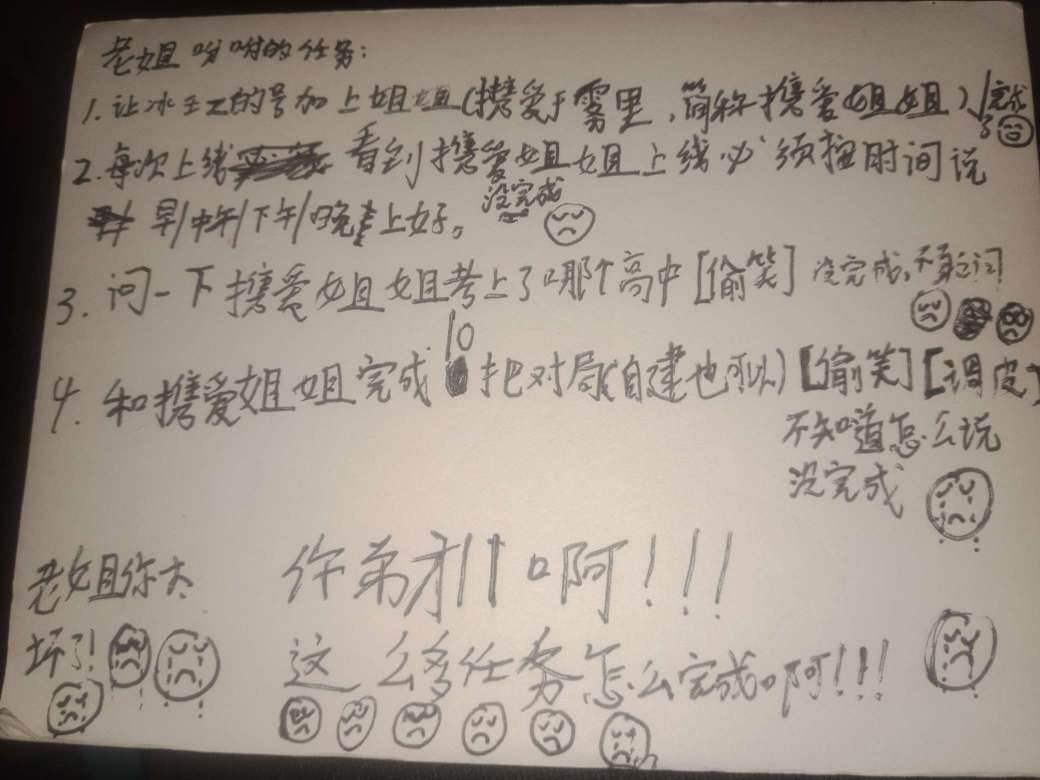 老姐吩咐的任务：
1. 让冰王Z的号加上姐姐(携爱于雾里，简称携爱姐姐)、完成了
2. 每次上线看到携爱姐姐上线必须按时间说
早/中午/下午/晚上好。没完成
3. 问一下携爱姐姐考上了哪个高中[偷笑] 没完成，不敢问
4. 和携爱姐姐完成10把对局(自建也可以)[偷笑][调皮]
不知道怎么说
没完成
老姐你太
坏了！
你弟利口啊！！！
这么多任务怎么完成啊！！！